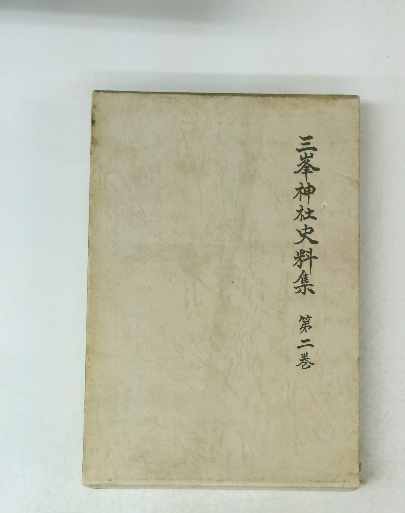 三峯神社史料集 第二巻